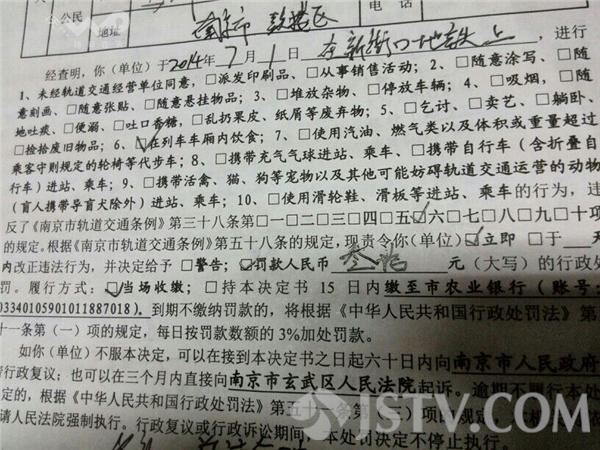 公民
地址
南京市 鼓楼区
电话
经查明，你（单位）于2014年7月1日在新街口地铁上，进行
1、未经轨道交通经营单位同意，□派发印刷品、□从事销售活动；2、□随意涂写、□随
意刻画、□随意张贴、□随意悬挂物品；3、□堆放杂物、□停放车辆；4、□吸烟，□随
地吐痰、□便溺、□吐口香糖，□乱扔果皮、纸屑等废弃物；5、□乞讨、□卖艺、□躺卧、
□捡拾废旧物品；6、☑在列车车厢内饮食；7、□使用汽油、燃气类以及体积或重量超过
乘客守则规定的轮椅等代步车；8、□携带充气气球进站、乘车、□携带自行车（含折叠自
行车）进站、乘车；9、□携带活禽、猫、狗等宠物以及其他可能妨碍轨道交通运营的动物
（盲人携带导盲犬除外）进站、乘车；10、□使用滑轮鞋、滑板等进站、乘车的行为，违
反了《南京市轨道交通条例》第三十八条第□一□二□三□四□五☑六□七□八□九□十项
的规定。根据《南京市轨道交通条例》第五十八条的规定，现责令你(单位)☑立即 □于 天
内改正违法行为，并决定给予 □警告；☑罚款人民币 叁拾 元（大写）的行政处
罚。履行方式：☑当场收缴；□持本决定书 15 日内缴至市农业银行（账号：
033401059010118870​18）。到期不缴纳罚款的，将根据《中华人民共和国行政处罚法》第五
十一条第（一）项的规定，每日按罚款数额的 3%加处罚款。
如你(单位）不服本决定，可以在接到本决定书之日起六十日内向南京市人民政府
行政复议；也可以在三个月内直接向南京市玄武区人民法院起诉。逾期不履行本处
定的，根据《中华人民共和国行政处罚法》第五十一条第（三）项的规定
请人民法院强制执行。行政复议或行政诉讼期间，本处罚决定不停止执行。
JSTV.COM